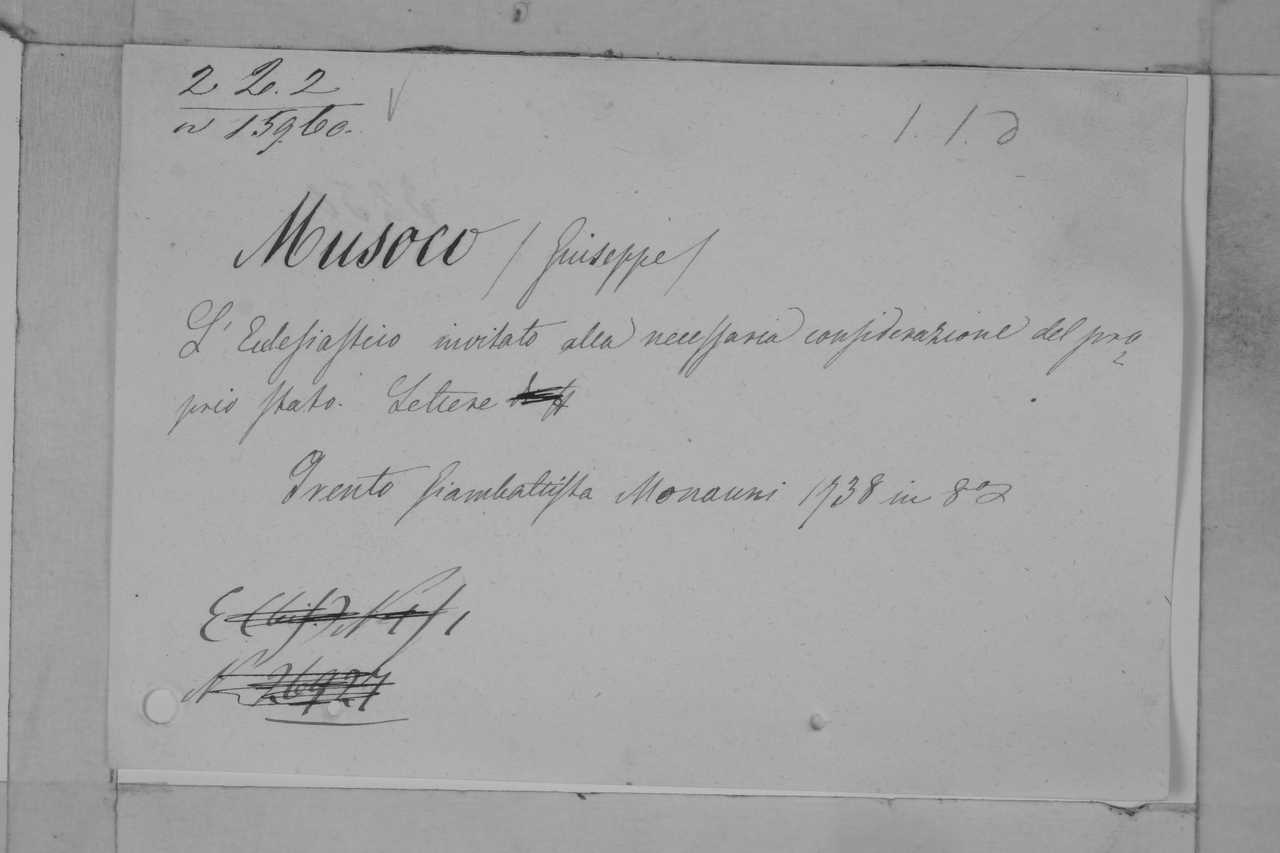 2 2. 2
n 15960.
1. 1. d
Musoco / Giuseppe /
L' Eclesiastico invitato alla necessaria considerazione del pro
prio stato. Lettere
Trento Giambattista Monauni 1738 in 8º
N 26927